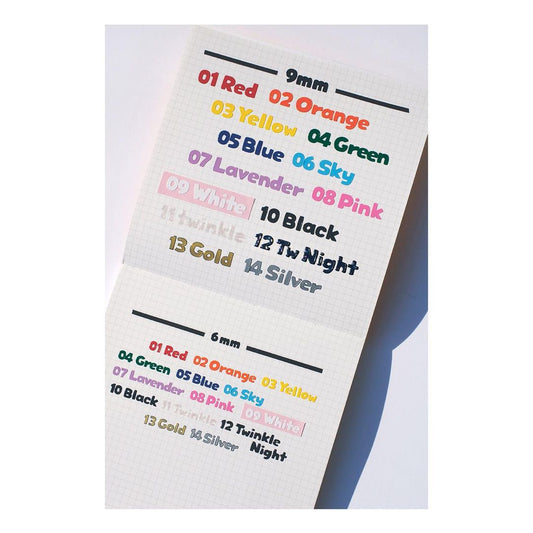 9mm
01 Red 02 Orange
03 Yellow 04 Green
05 Blue 06 Sky
07 Lavender 08 Pink
09 White 10 Black
11 twinkle 12 Tw Night
13 Gold 14 Silver
6mm
01 Red 02 Orange 03 Yellow
04 Green 05 Blue 06 Sky
07 Lavender 08 Pink 09 White
10 Black 11 Twinkle 12 Twinkle
13 Gold 14 Silver Night